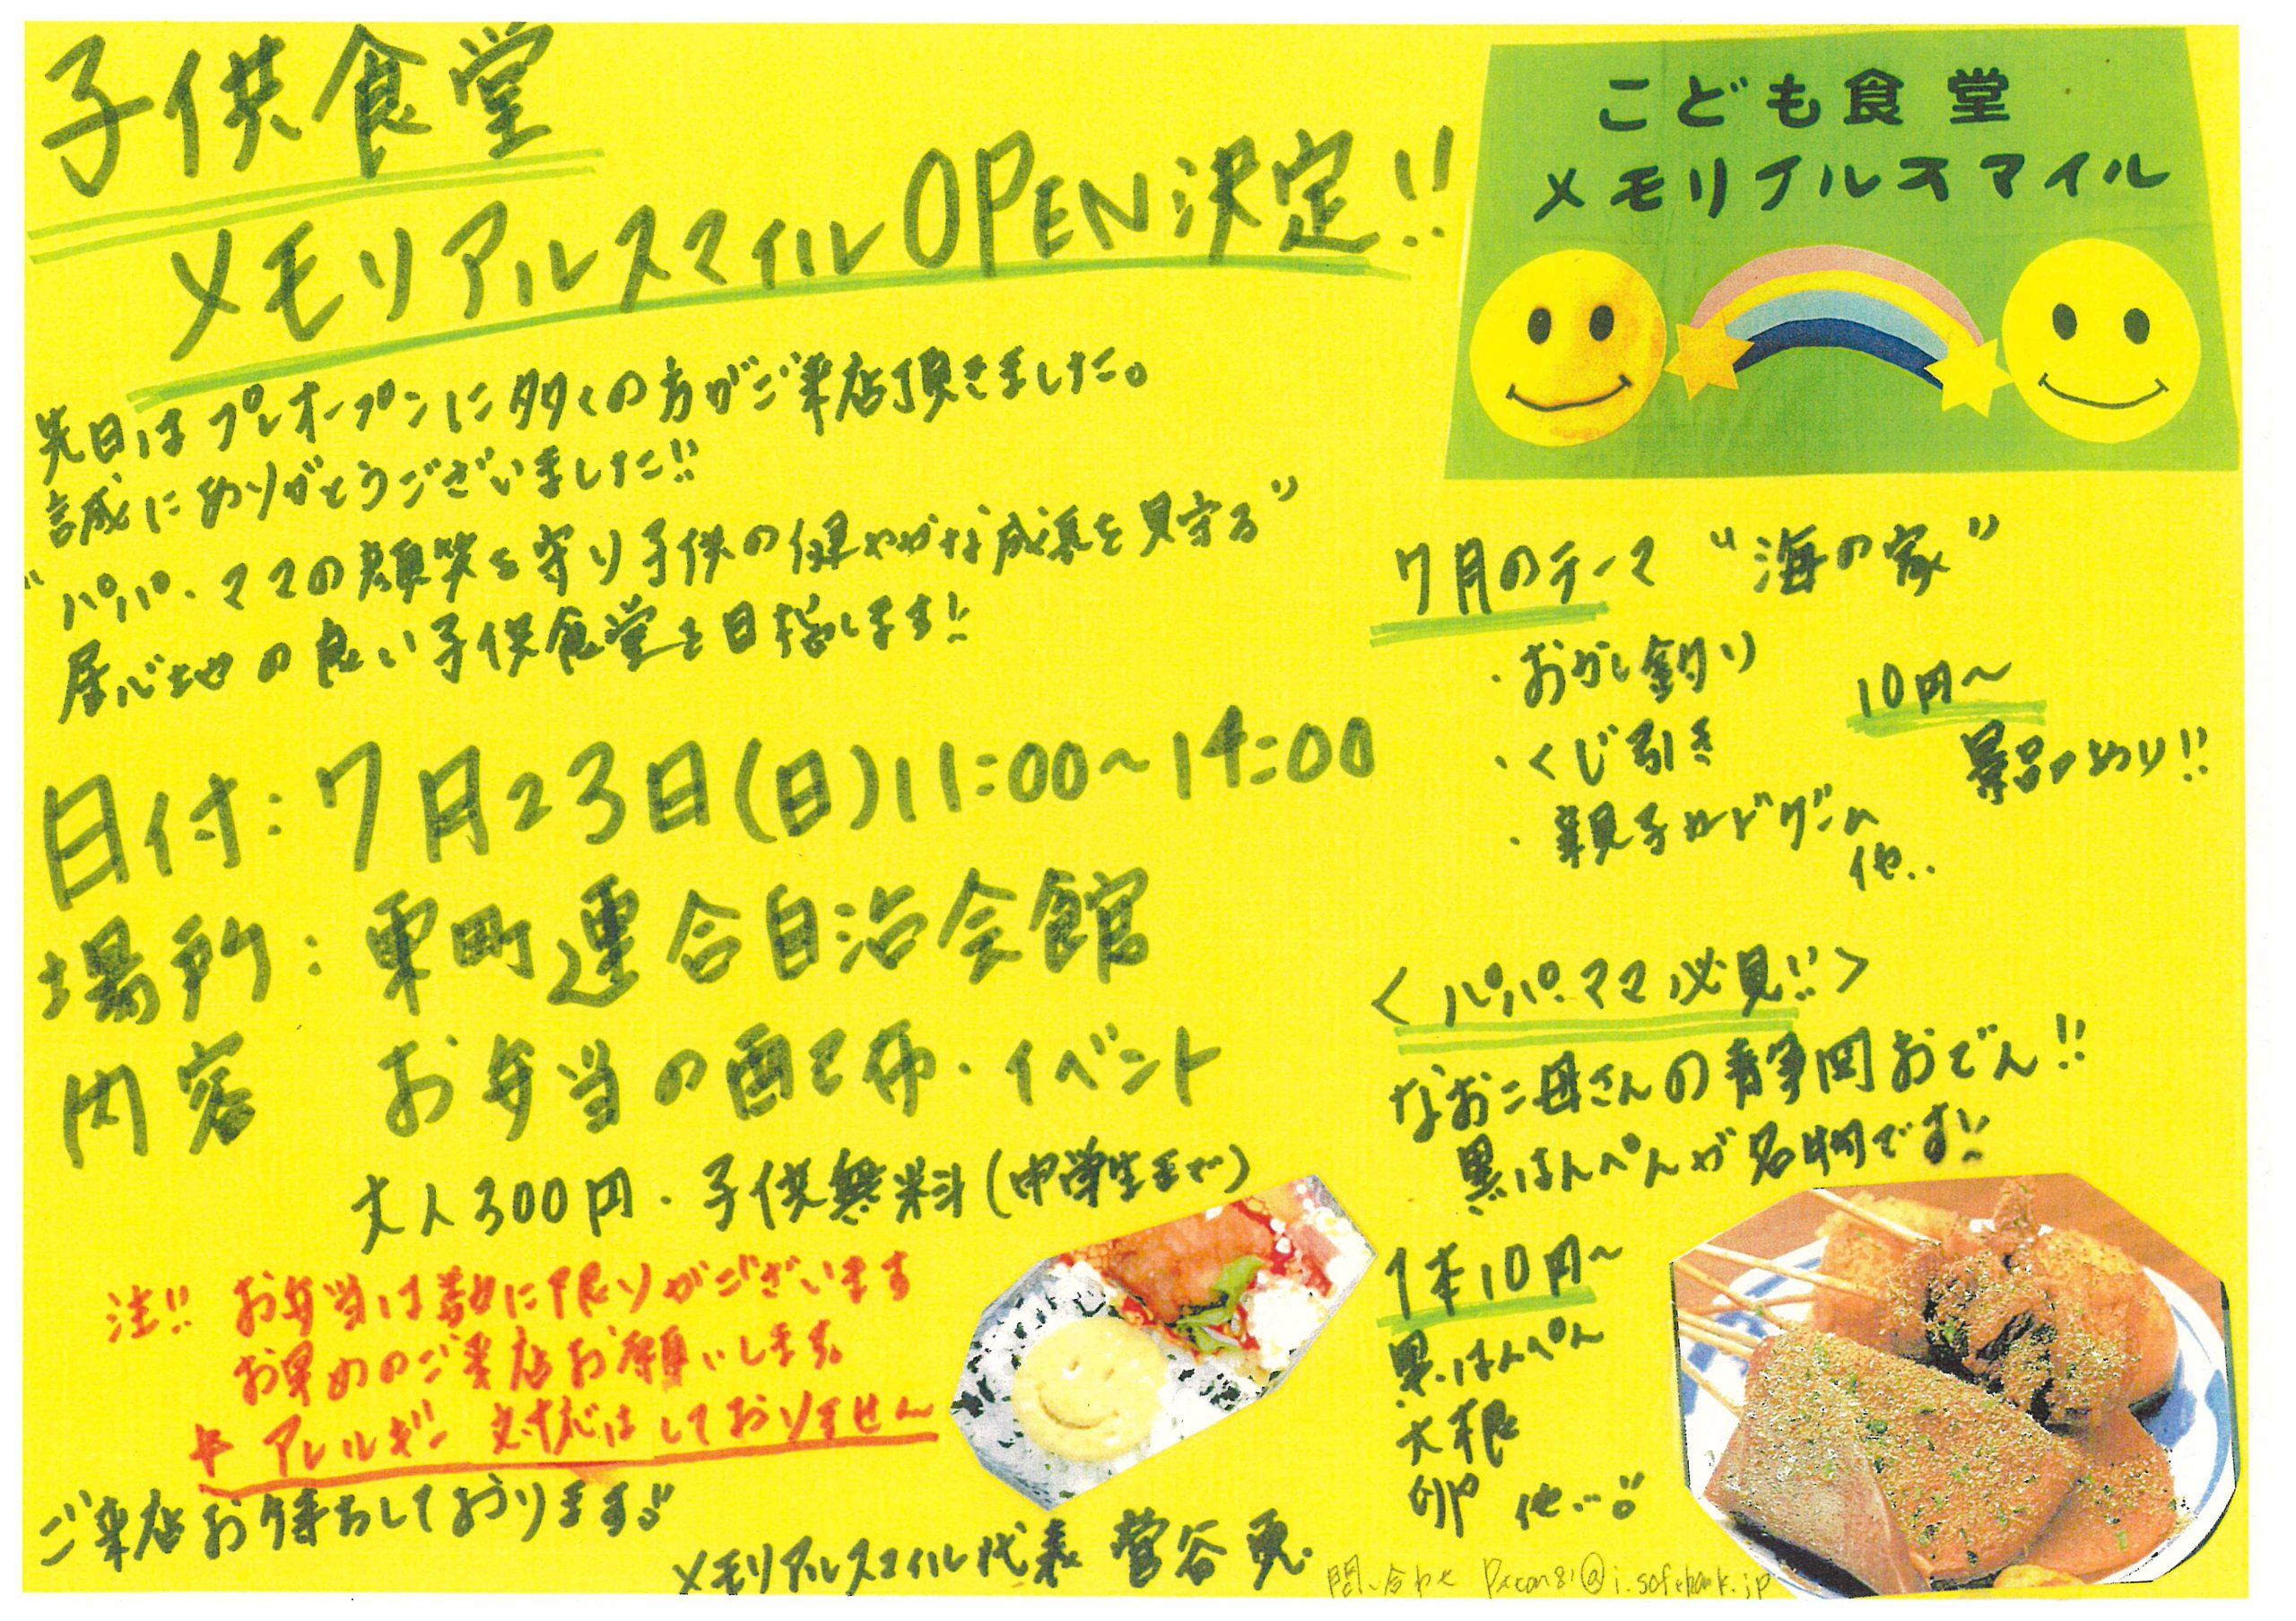 子供食堂
メモリアルスマイルOPEN決定!!
先日はプレオープンに多くの方がご来店頂きました。
誠にありがとうございました!!
"パパ・ママの顔笑を守り子供の健やかな成長を見守る"
居心地の良い子供食堂を目指します!!
日付:7月23日(日)11:00~14:00
場所:東町連合自治会館
内容 お弁当の配布・イベント
大人300円・子供無料(中学生まで)
注!! お弁当は数に限りがございます
お早めのご来店お願いします。
* アレルギー対応はしておりません
ご来店お待ちしております!!
メモリアルスマイル代表 菅谷
こども食堂
メモリアルスマイル
7月のテーマ "海の家"
・おかし釣り
・くじ引き
・親子カードゲーム
他..
10円~
景品あり!!
<パパ・ママ必見!!>
なおこ母さんの静岡おでん!!
黒はんぺんが名物です!!
1本10円~
黒はんぺん
大根
卵 他…
問い合わせ